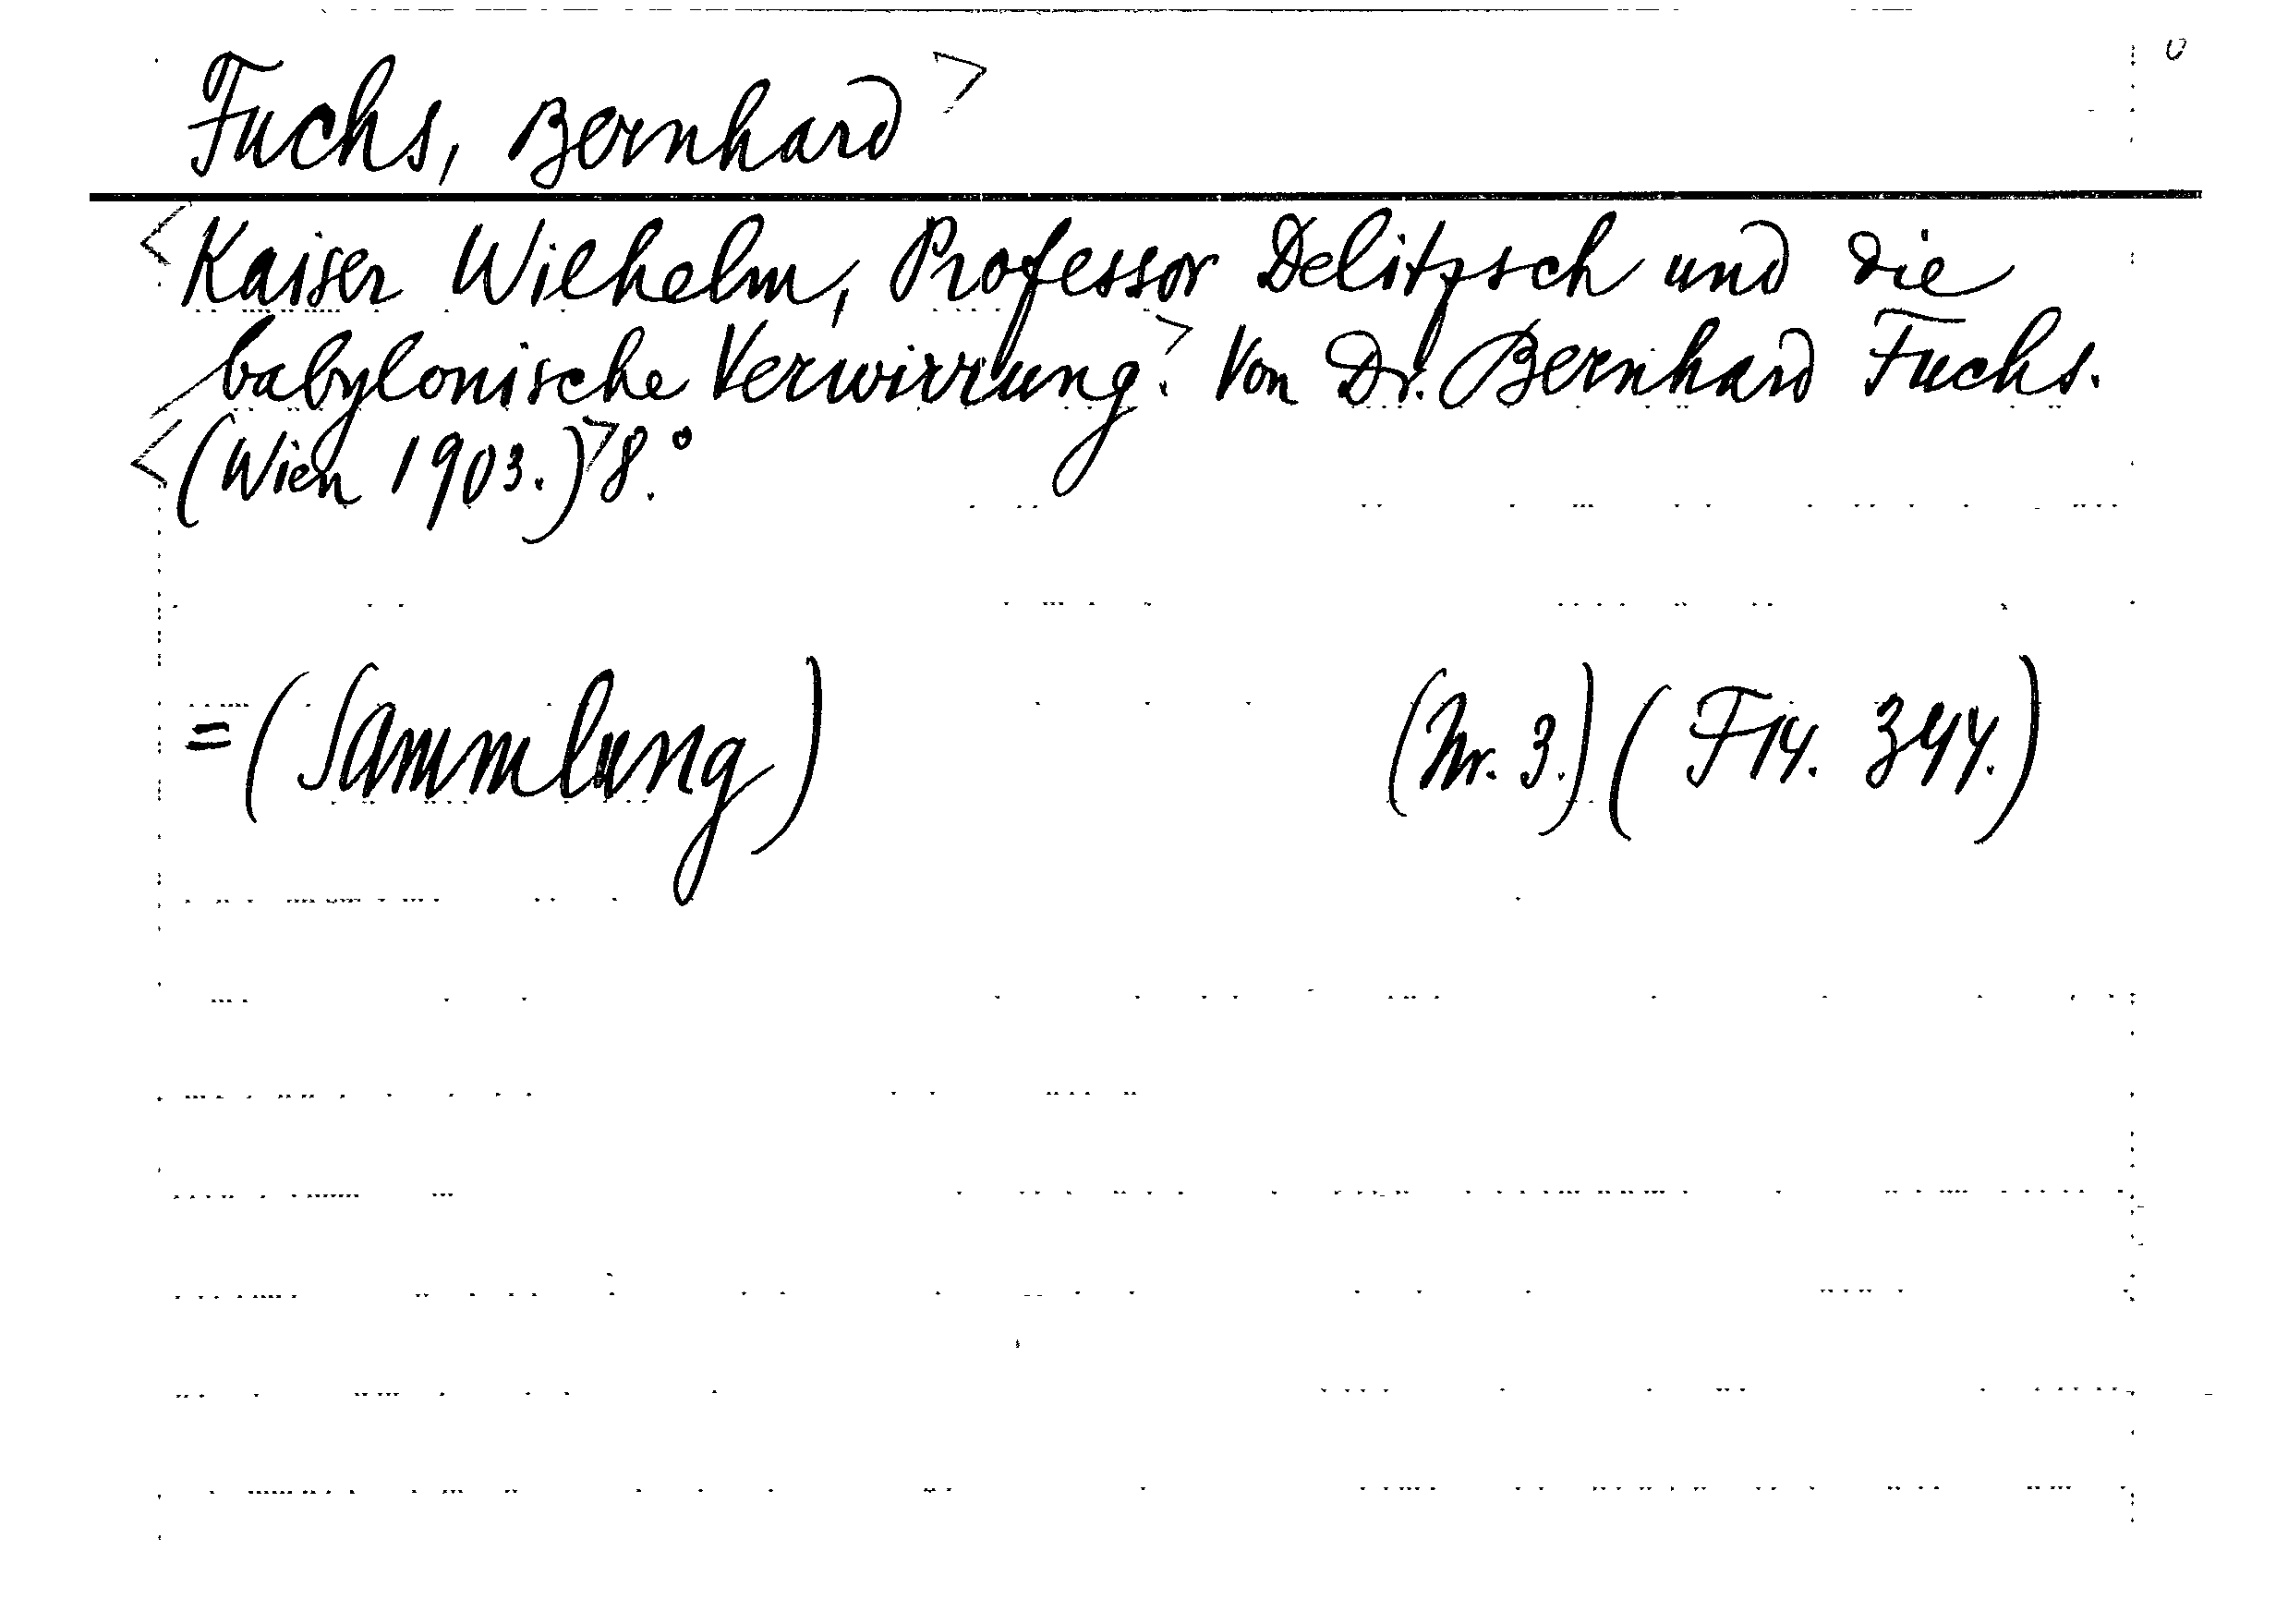 Fuchs, Bernhard>
<Kaiser Wilhelm, Professor Delitzsch und die
babylonische Verwirrung.> Von Dr. Bernhard Fuchs.
<(Wien 1903.)> 8.°
=(Sammlung) (Nr. 3.) (F14. 344.)